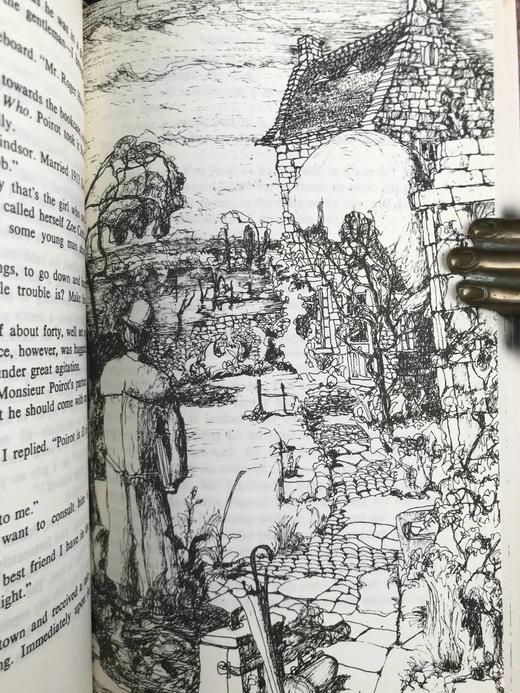 as he was in
the gentleman—I
eboard. "Mr. Roger
towards the bookcase
Who. Poirot took it
lly.
indsor. Married 1913
ob."
y that's the girl who
called herself Zoe
some young man
ngs, to go down and
le trouble is? Make
f about forty, well set
ce, however, was haggard
under great agitation.
Monsieur Poirot's partner
t he should come with
I replied. "Poirot is
to me."
want to consult him
best friend I have in
ight."
town and received a
ng. Immediately upon